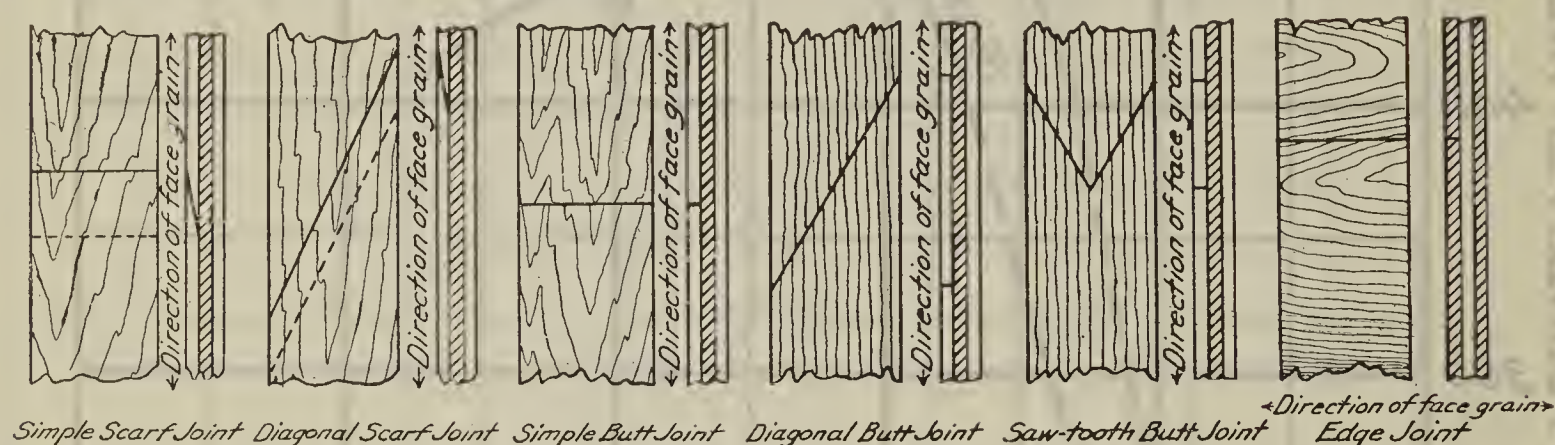 Direction of face grain
Direction of face grain
Direction of face grain
Direction of face grain
Direction of face grain
Direction of face grain
Simple Scarf Joint
Diagonal Scarf Joint
Simple Butt Joint
Diagonal Butt Joint
Saw-tooth Butt Joint
Edge Joint